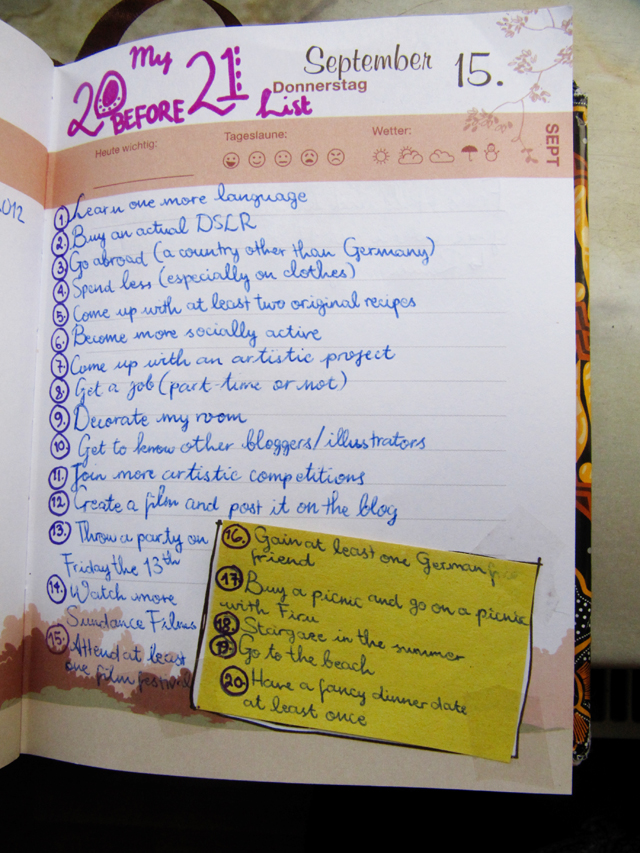 My
20 BEFORE 21
List
September 15.
Donnerstag
Heute wichtig:
Tageslaune:
Wetter:
SEPT
2012
1. Learn one more language
2. Buy an actual DSLR
3. Go abroad (a country other than Germany)
4. Spend less (especially on clothes)
5. Come up with at least two original recipes
6. Become more socially active
7. Come up with an artistic project
8. Get a job (part-time or not)
9. Decorate my room
10. Get to know other bloggers/illustrators
11. Join more artistic competitions
12. Create a film and post it on the blog
13. Throw a party on
Friday the 13th
14. Watch more
Sundance Films
15. Attend at least
one film festival
16. Gain at least one German
friend
17. Buy a picnic and go on a picnic
with Firu
18. Stargaze in the summer
19. Go to the beach
20. Have a fancy dinner date
at least once